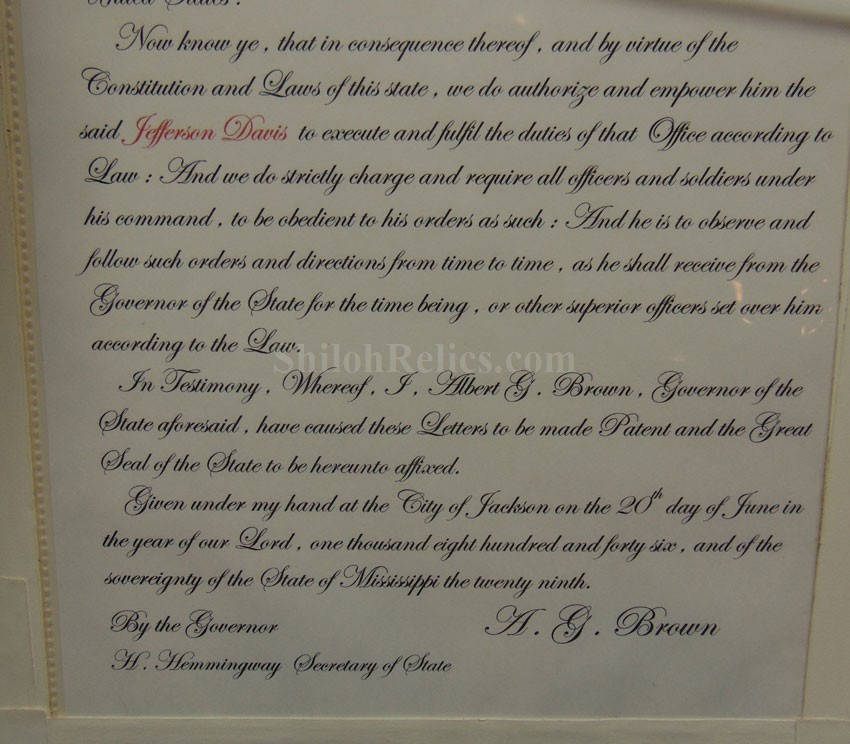 United States .
Now know ye , that in consequence thereof , and by virtue of the
Constitution and Laws of this state , we do authorize and empower him the
said Jefferson Davis to execute and fulfil the duties of that Office according to
Law : And we do strictly charge and require all officers and soldiers under
his command , to be obedient to his orders as such : And he is to observe and
follow such orders and directions from time to time , as he shall receive from the
Governor of the State for the time being , or other superior officers set over him
according to the Law.
ShilohRelics.com
In Testimony , Whereof , I , Albert G . Brown , Governor of the
State aforesaid , have caused these Letters to be made Patent and the Great
Seal of the State to be hereunto affixed.
Given under my hand at the City of Jackson on the 20th day of June in
the year of our Lord , one thousand eight hundred and forty six , and of the
sovereignty of the State of Mississippi the twenty ninth.
By the Governor
A . G . Brown
H . Hemmingway Secretary of State